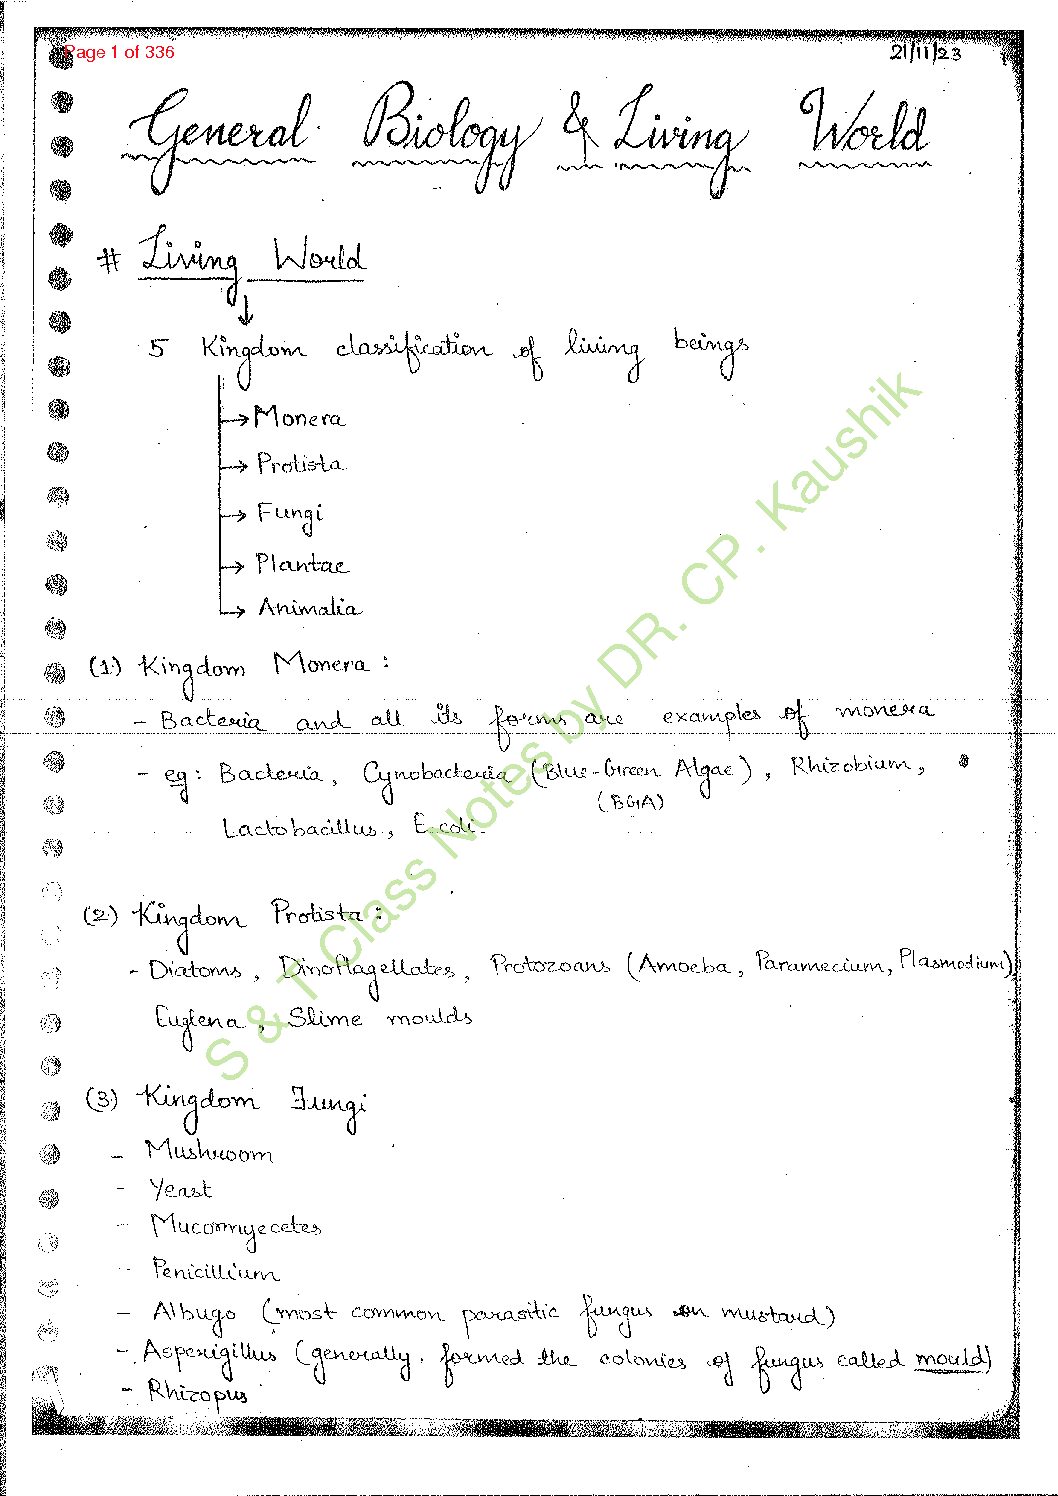 Page 1 of 336
21/11/23
General Biology & Living World
# Living World
5 Kingdom classification of living beings
→ Monera
→ Protista
→ Fungi
→ Plantae
→ Animalia
(1) Kingdom Monera :
- Bacteria and all its forms are examples of monera
- eg : Bacteria, Cynobacteria (Blue-Green Algae), Rhizobium,
(BGA)
Lactobacillus, E.coli.
(2) Kingdom Protista :
- Diatoms, Dinoflagellates, Protozoans (Amoeba, Paramecium, Plasmodium),
Euglena, Slime moulds
(3) Kingdom Fungi
- Mushroom
- Yeast
- Mucormyecetes
- Penicillium
- Albugo (most common parasitic fungus on mustard)
- Aspergillus (generally formed the colonies of fungus called mould)
- Rhizopus
S & T Class Notes by DR. CP. Kaushik